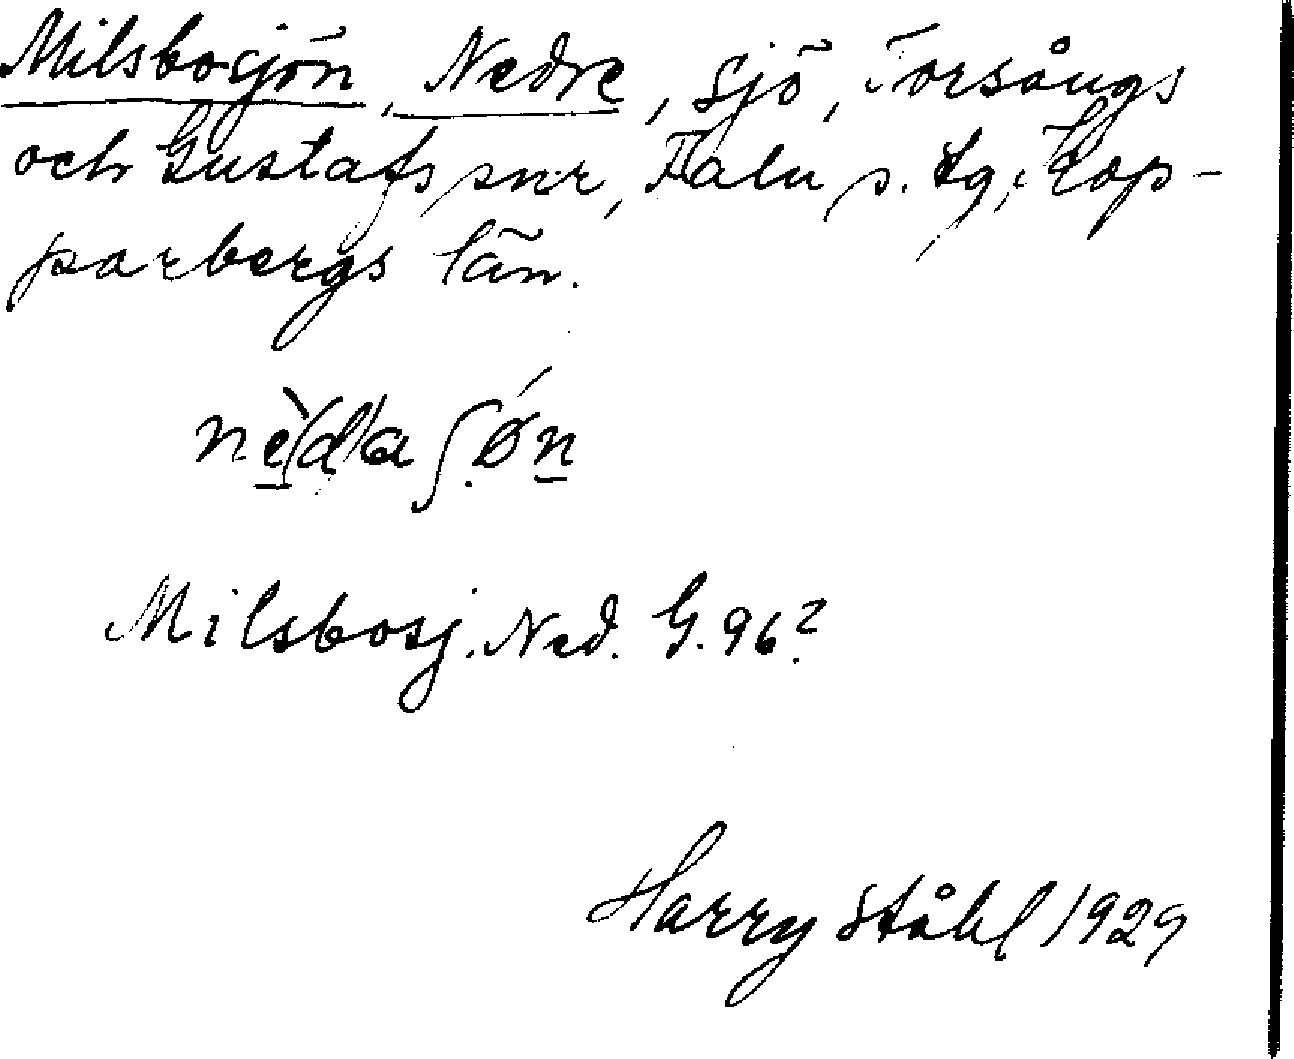 Milsbosjön, Nedre, sjö, Torsångs
och Gustafs snr, Falu s. tg, Kop-
parbergs län.
nè(d)a ʃǿn
Milsbosj. Ned. G. 96?
Harry Ståhl 1929